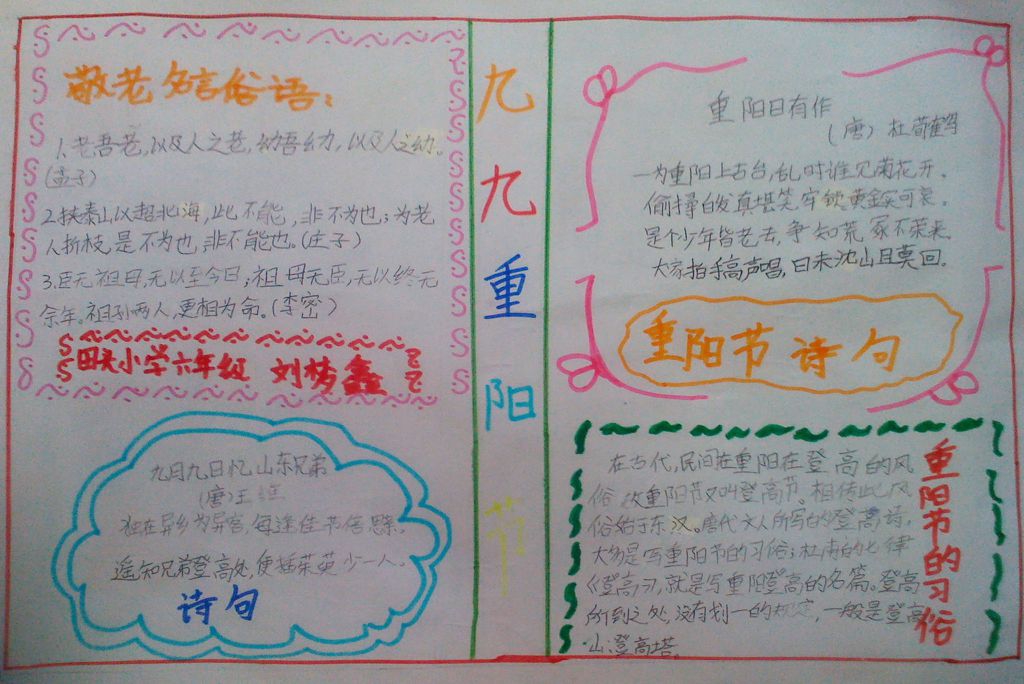 敬老名言俗语:
1.老吾老,以及人之老,幼吾幼,以及人之幼。
(孟子)
2.扶泰山以超北海,此不能,非不为也;为老
人折枝,是不为也,非不能也。(庄子)
3.臣无祖母,无以至今日;祖母无臣,无以终无
余年。祖孙两人,更相为命。(李密)
田头小学六年级 刘梦鑫
九月九日忆山东兄弟
(唐)王维
独在异乡为异客,每逢佳节倍思亲,
遥知兄弟登高处,便插茱萸少一人。
诗句
九九重阳节
重阳日有作
(唐)杜荀鹤
一为重阳上古台,乱时谁见菊花开。
偷挦白发真堪笑,牢锁黄金实可哀。
是个少年皆老去,争知荒冢不荣来。
大家拍手高声唱,日未沈山且莫回.
重阳节诗句
在古代,民间在重阳在登高的风
俗,故重阳节又叫登高节。相传此风
俗始于东汉。唐代文人所写的登高诗,
大多是写重阳节的习俗;杜甫的七律
《登高》,就是写重阳登高的名篇。登高
所到之处,没有划一的规定,一般是登高
山、登高塔。
重阳节的习俗